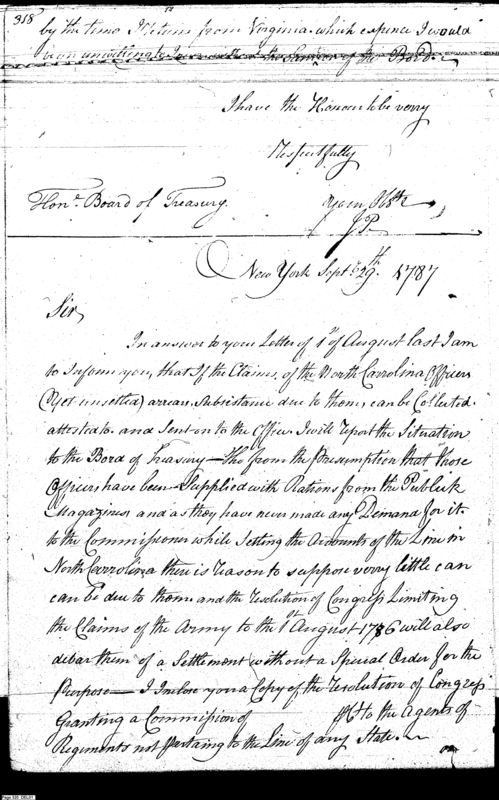 318
by the time I return from Virginia which expence I would
be on unwilling to the Sanction of the Board.
I have the Honour to be verry
Respectfully
Honl. Board of Treasury.
Your Obst
J P.
New York Septr. 29th. 1787
Sir
In answer to your Letter of 1st of August last I am
to Inform you, that If the Claims, of the North Carrolina Officers
(Yet unsetled) arrears Subsistance due to them, can be Collected
attested to and sent on to the Office I will report the Situation
to the Bord of Treasury — Tho' from the Presemption that those
Officers have been Supplied with Rations from the Publick
Magazines and as they have never made any Demand for it
to the Commissioner while Setling the Accounts of the Line in
North Carrolina there is reason to suppose verry little can
can be due to them and the resolution of Congress Limiting
the Claims of the Army to the 1st August 1786 will also
debar them of a Settlement without a Special Order for the
Purpose — I Inclose you a Copy of the resolution of Congress
Granting a Commission of Ct to the Agents of
Regiments not Pertaing to the Line of any State.